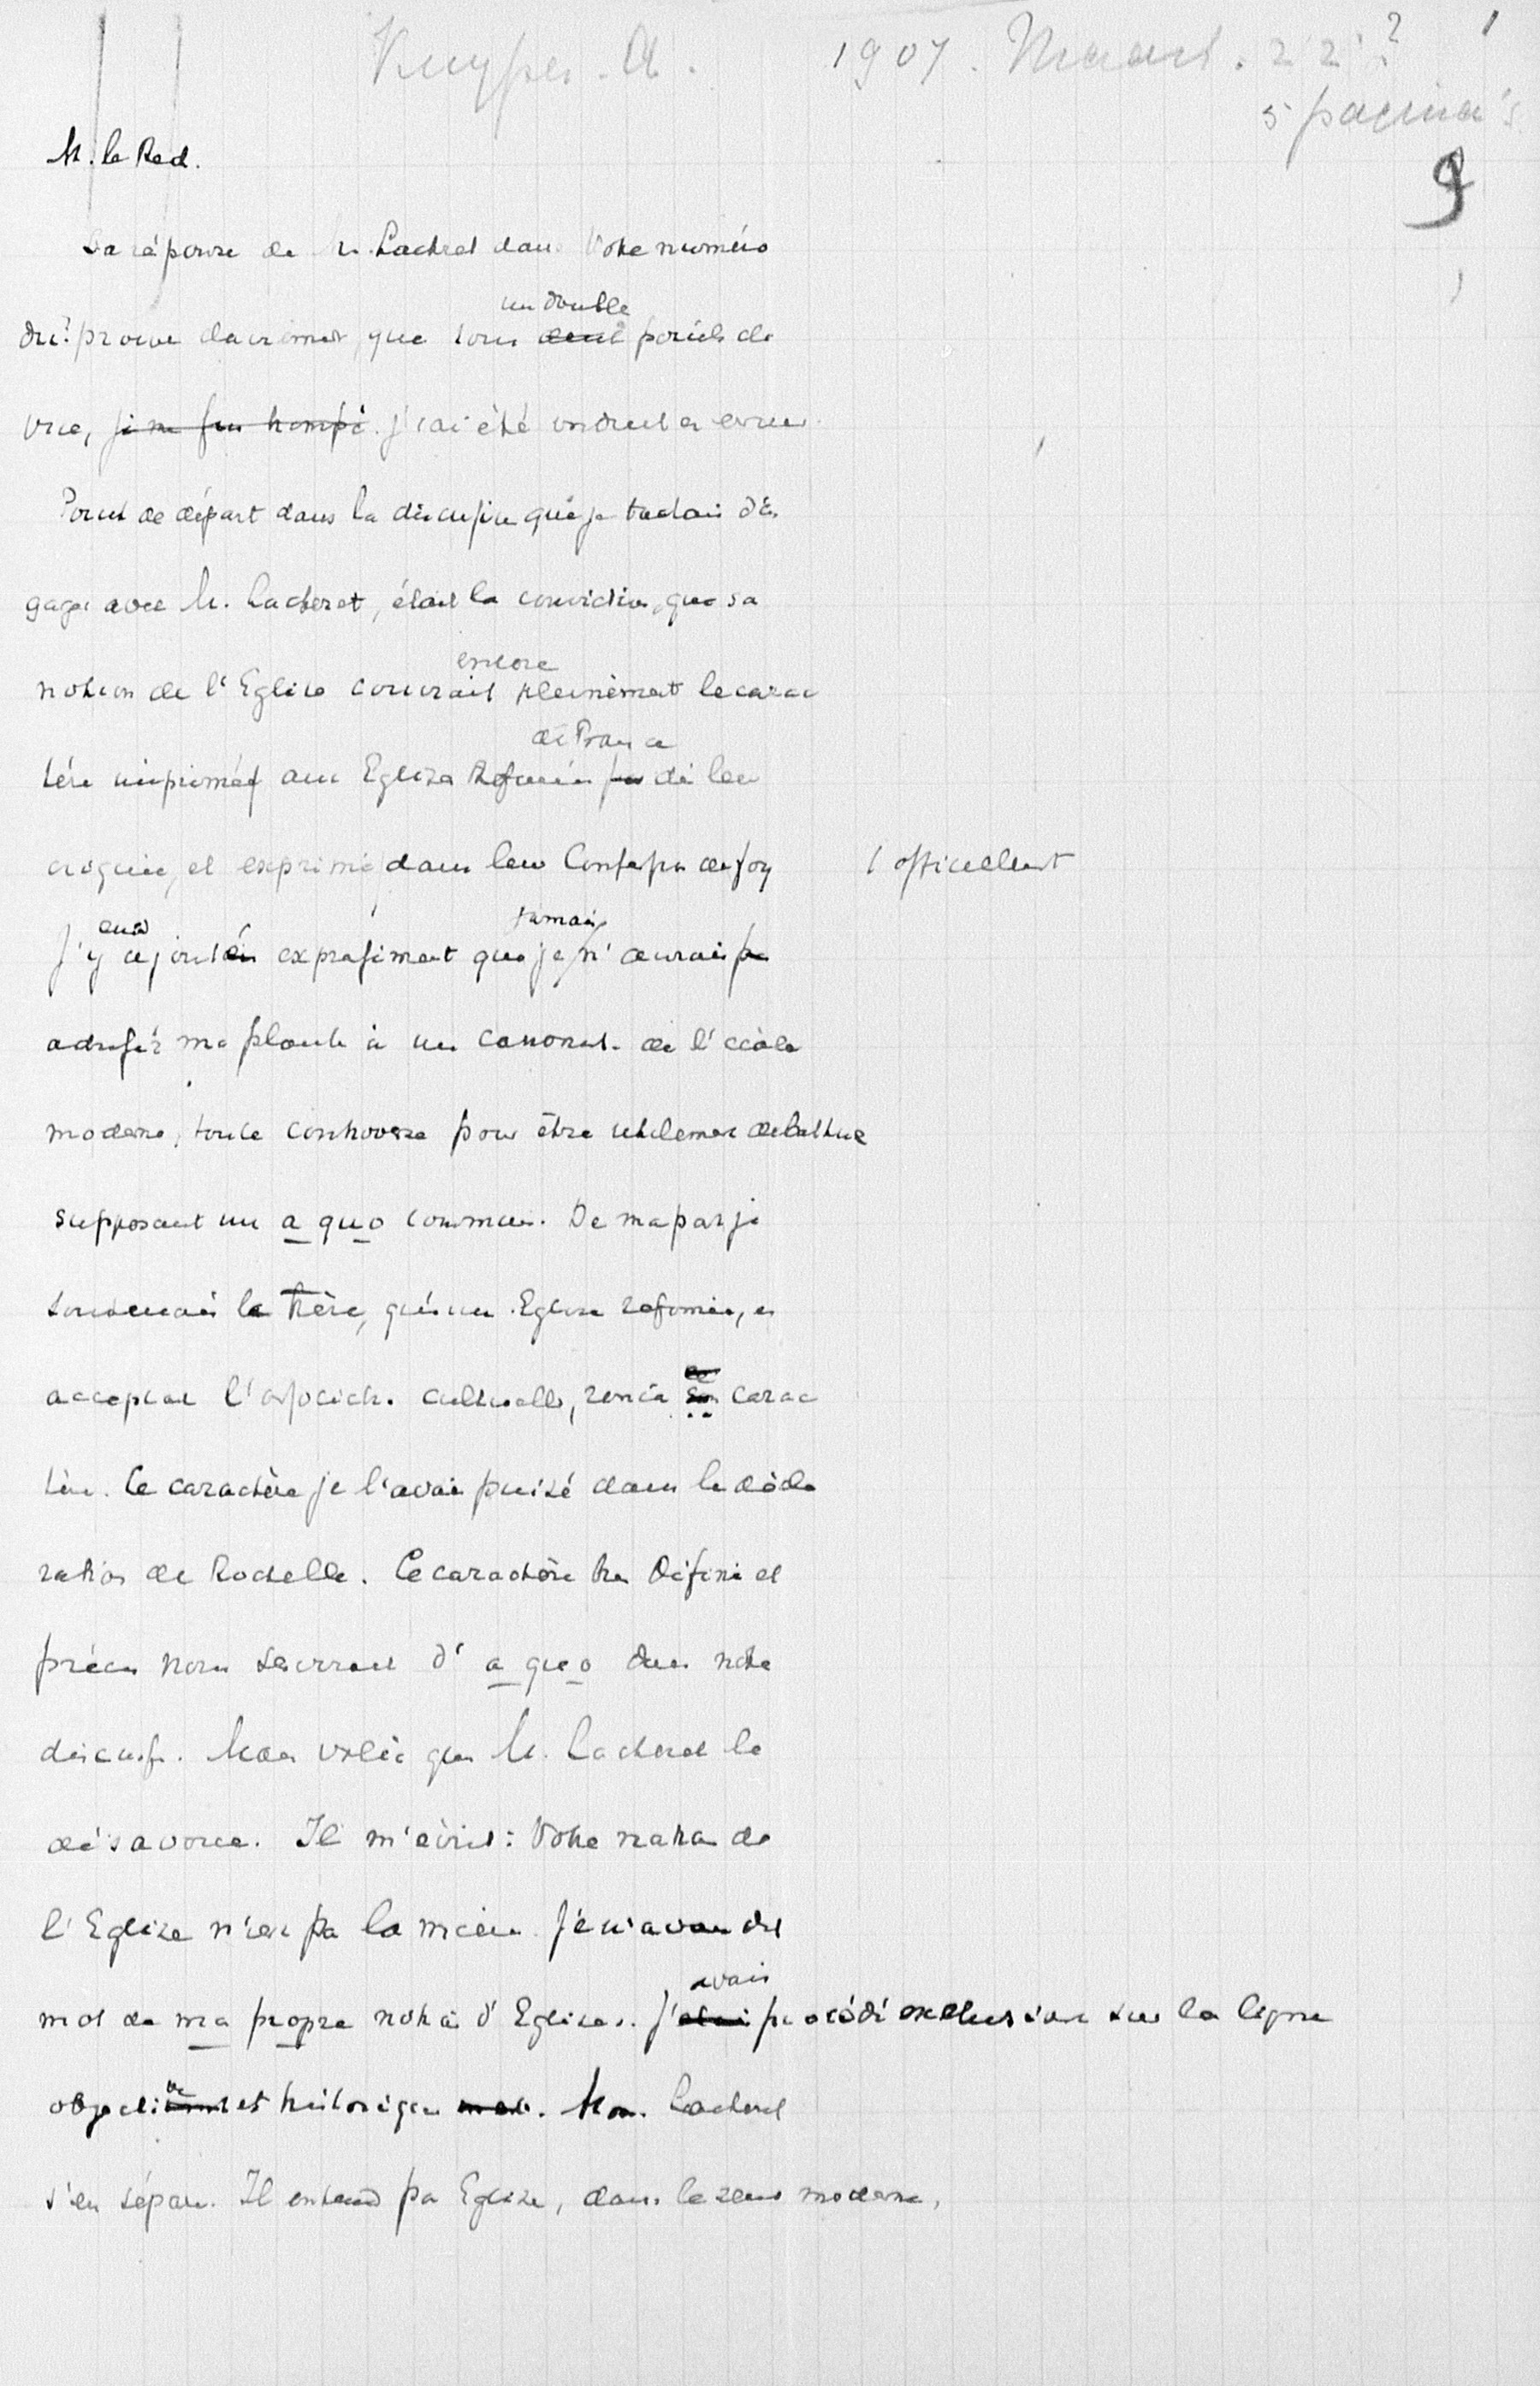 Kuyper. A. 1907. Maart. 22? 1
5 pagina's
9
M. le Red.
La réponse de M. Lacheret dans Votre numéro
un double
du ? prouve clairement, que sous deux points de
vue, je me suis trompé. j'ai été induit en erreur.
Point de départ dans la discussion que je tachais d'en
gager avec M. Lacheret, était la conviction, que sa
encore
notion de l'Eglise couvrait pleinement le carac
de France
tère imprimé aux Eglises Reformées de leur
origine, et exprimé dans leur Confession de foy
| officiellement
eusse jamais
J'y ajoutais expressément que je n'aurais pas
adresser ma plainte à un de l'école
moderne, toute controverse pour être utilement debattue
supposant un a quo commun. De ma part je
soutenais la thèse, qu'une Eglise reformée, en
acceptant l'associat. cultuelle, renia son carac
tère. Ce caractère je l'avais puisé dans la décla
ration de Rochelle. Ce caractère très défini et
précis nous servirait d'a quo dans notre
discuss. Mais voilà que M. Lacheret le
désavoue. Il m'écrit: Votre notion de
l'Eglise n'est pas la mienne. Je n'avais dit
mot de ma propre notion d'Eglises. J'avais procédé exclusivem. sur la ligne
objective et historique. Mon. Lacheret
s'en sépare. Il entend par Eglise, dans le sens moderne,